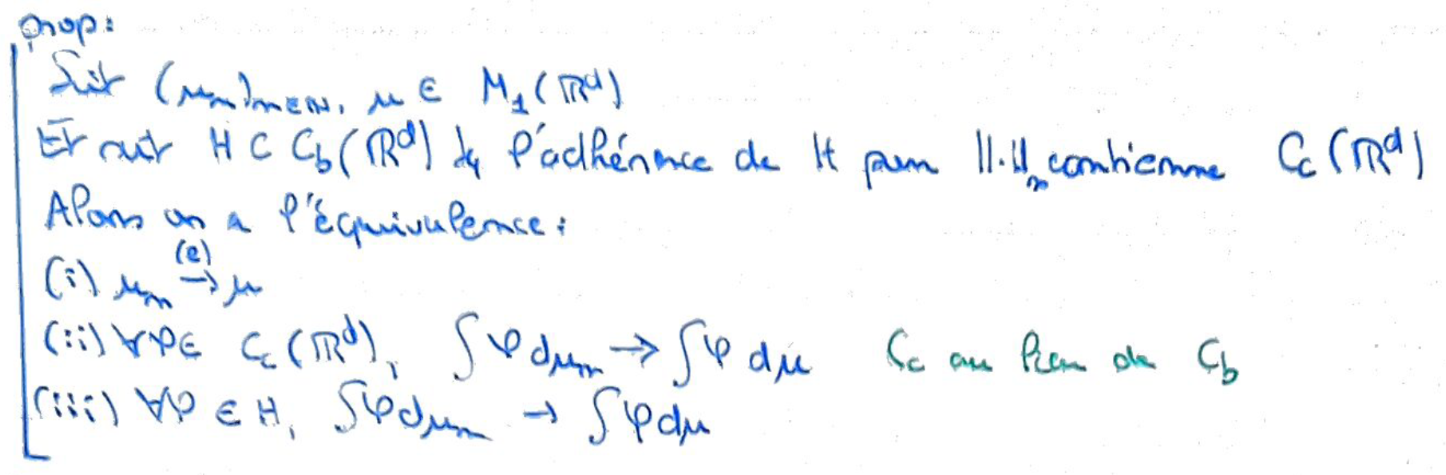 prop:
Soit (μₙ)ₙ∈ℕ, μ ∈ M₁(ℝᵈ)
Et soit H ⊂ C_b(ℝᵈ) tq l'adhérence de H pour ||·||_∞ contienne C_c(ℝᵈ)
Alors on a l'équivalence:
(i) μₙ →^(e) μ
(ii) ∀φ∈ C_c(ℝᵈ), ∫φ dμₙ → ∫φ dμ C_c au lieu de C_b
(iii) ∀φ ∈ H, ∫φdμₙ → ∫φdμ